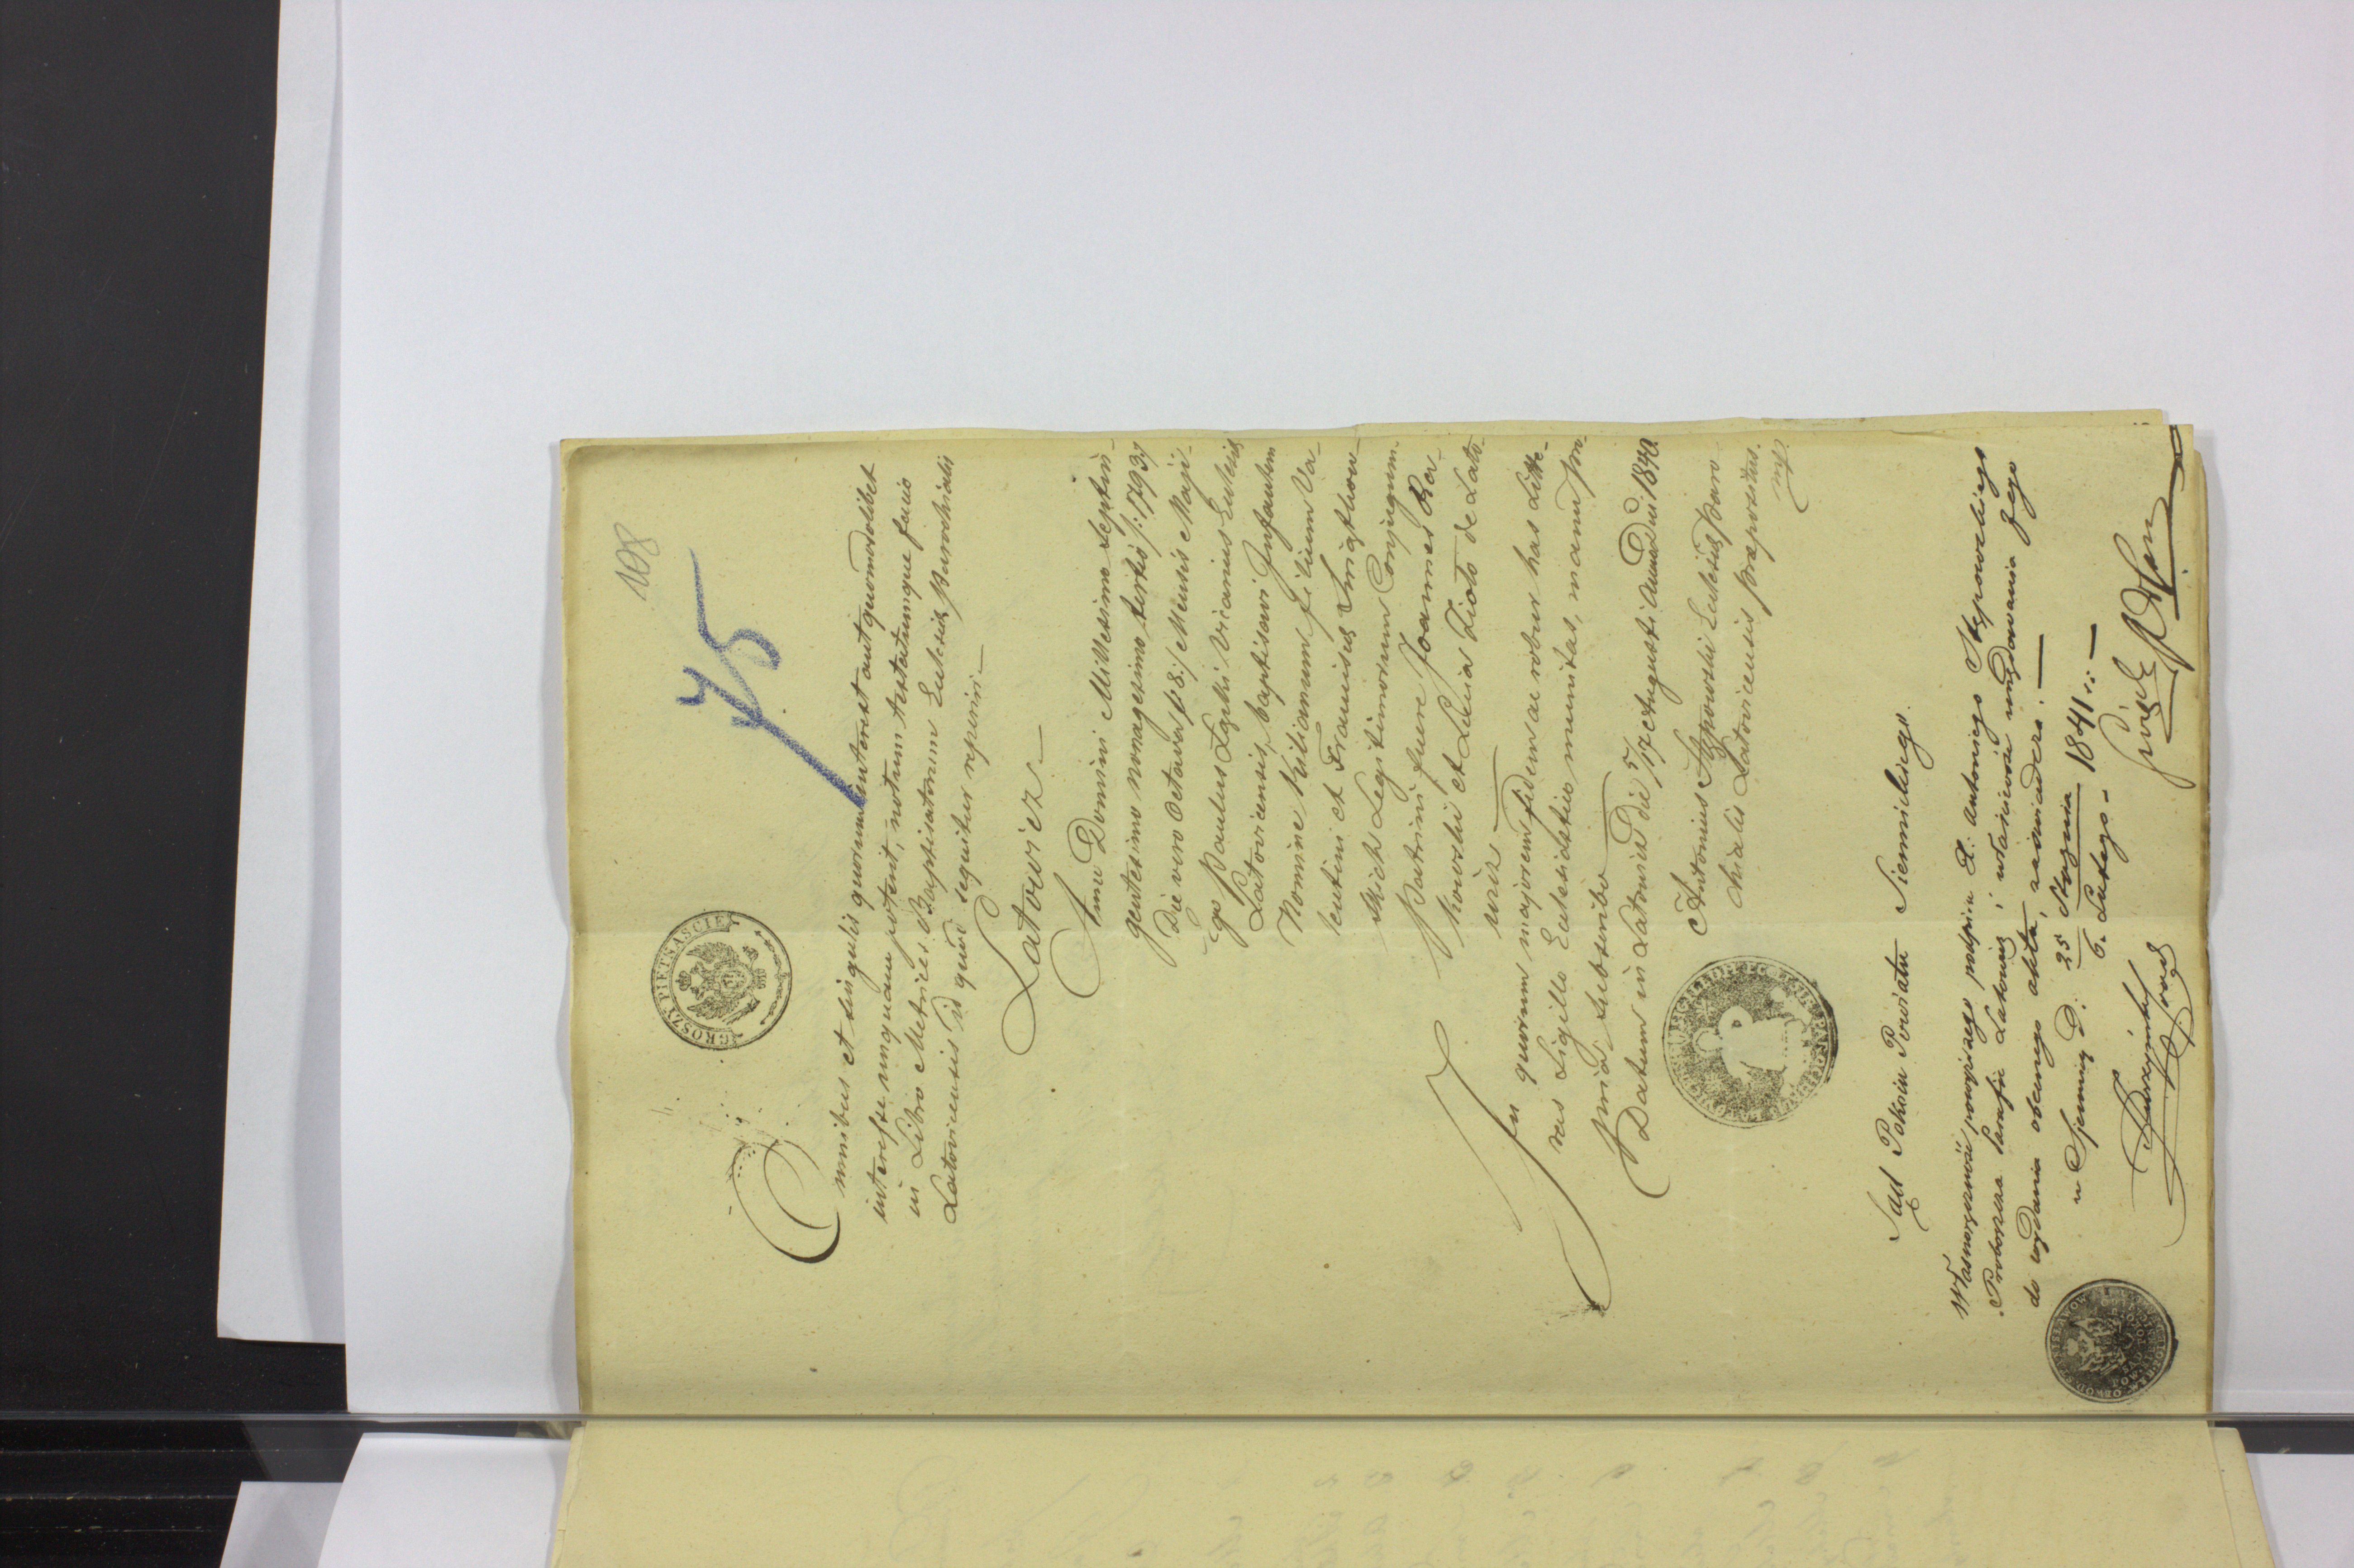 108
GROSZY PIETNASCIE
75
Omnibus et singulis quorum interest aut quomodolibet
interesse unquam poterit, notum testatumque facio
in Libro Metrices Baptisatorum Ecclesiæ Parochialis
Latoviciensis id quod sequitur reperiri.—
Latowicz—
Anno Domini Millesimo septin-
gentesimo nonagesimo tertio /: 1793 :/
Die vero Octava /: 8 :/ Mensis Maji-
ego Paulus Vicarius Ecclesiæ
Latoviciensis, baptisavi Infantem
Nomine Kilianum filium Va-
lentini et Franciscæ
skich Legitimorum Conjugum.
Patrini fuere Joannes
kowski et Lucia de Lato-
wicz—
In quorum majorem fidem ac robur has Litte-
ras Sigillo Ecclesiastico munitas, manu pro-
pria subscribo—
Datum in Latowicz die 5/17 Augusti Anno Dni 1840
Antonius Stępowski Ecclesiæ Paro-
chialis Latoviciensis præpositus.
mp.
Sąd Pokoiu Powiatu Siennickiego.
Własnoręczność powyższego podpisu X. Antoniego Stępowskiego
Proboszcza Parafii Latowicz i właściwość urzędowania Jego
do wydania obecnego aktu, zaświadcza.—
w Siennicy D. 25 Stycznia / 6. Lutego 1841 r.—